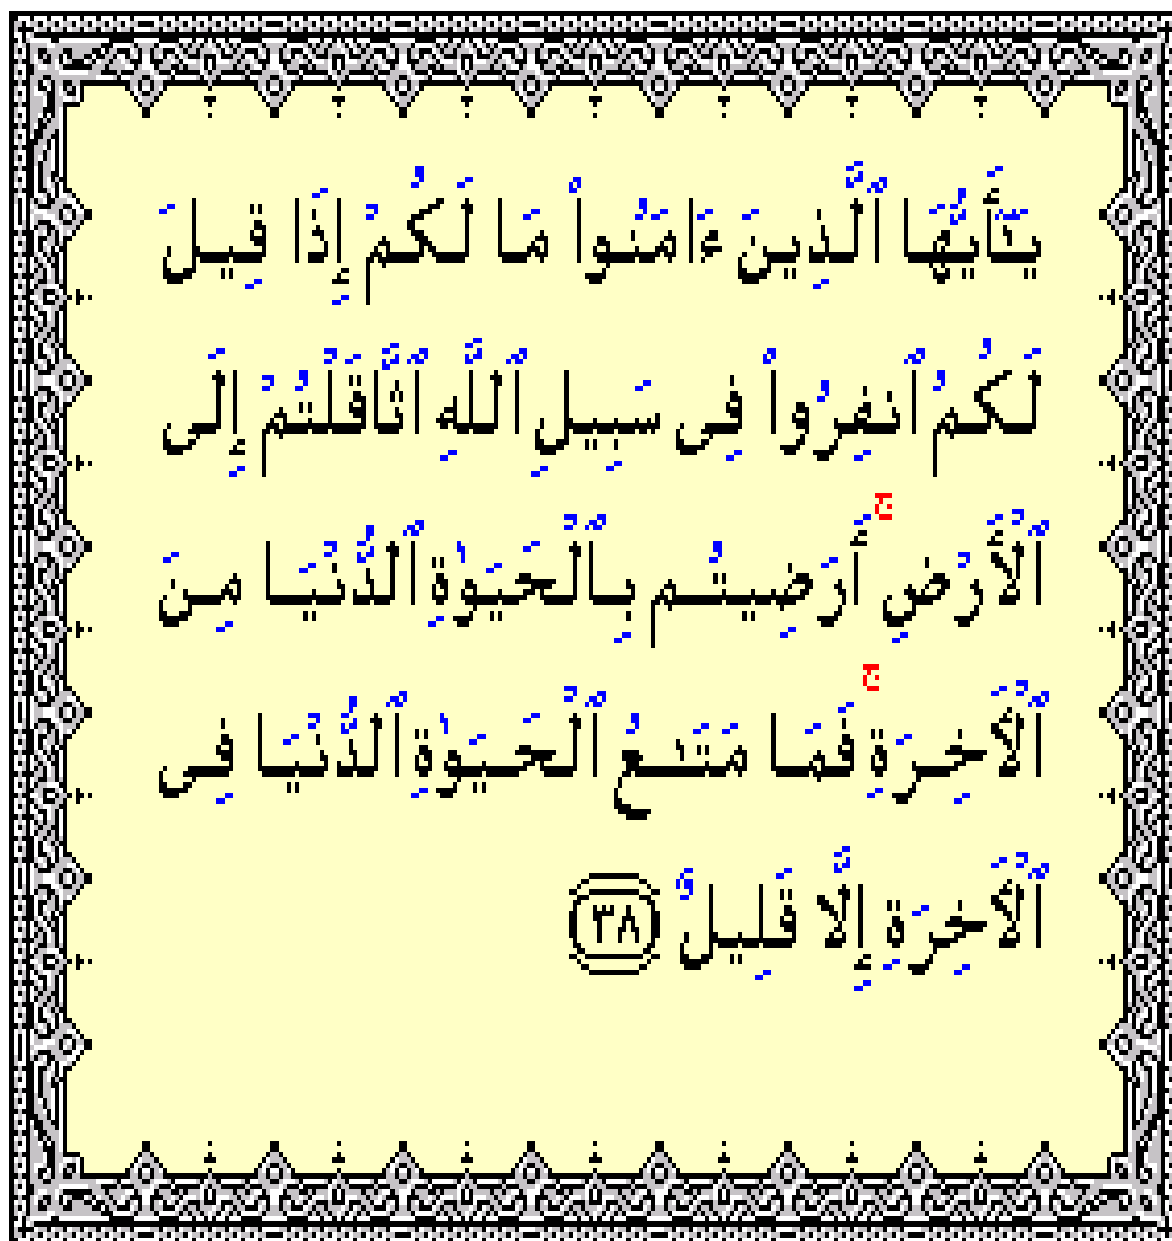 يَـٰٓأَيُّهَا ٱلَّذِينَ ءَامَنُوا۟ مَا لَكُمْ إِذَا قِيلَ
لَكُمُ ٱنفِرُوا۟ فِى سَبِيلِ ٱللَّهِ ٱثَّاقَلْتُمْ إِلَى
ٱلْأَرْضِ ۚ أَرَضِيتُم بِٱلْحَيَوٰةِ ٱلدُّنْيَا مِنَ
ٱلْـَٔاخِرَةِ ۚ فَمَا مَتَـٰعُ ٱلْحَيَوٰةِ ٱلدُّنْيَا فِى
ٱلْـَٔاخِرَةِ إِلَّا قَلِيلٌ ٣٨